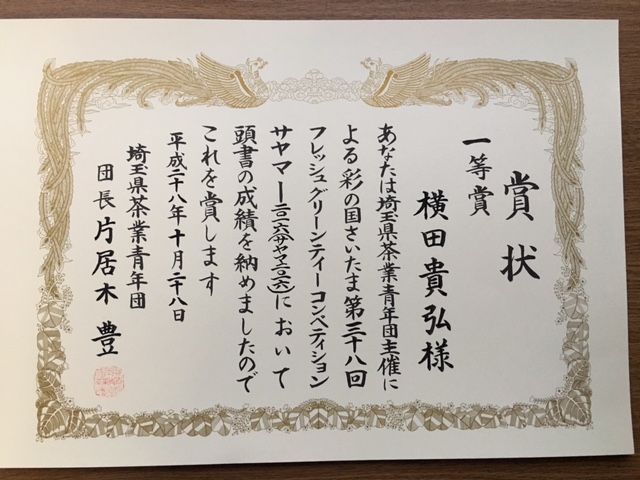 賞状
一等賞
横田貴弘様
あなたは埼玉県茶業青年団主催に
よる彩の国さいたま第三十八回
フレッシュグリーンティーコンペティション
サヤマー二〇一六(サヤマ二〇一六)において
頭書の成績を納めましたので
これを賞します
平成二十八年十月二十八日
埼玉県茶業青年団
団長 片居木 豊